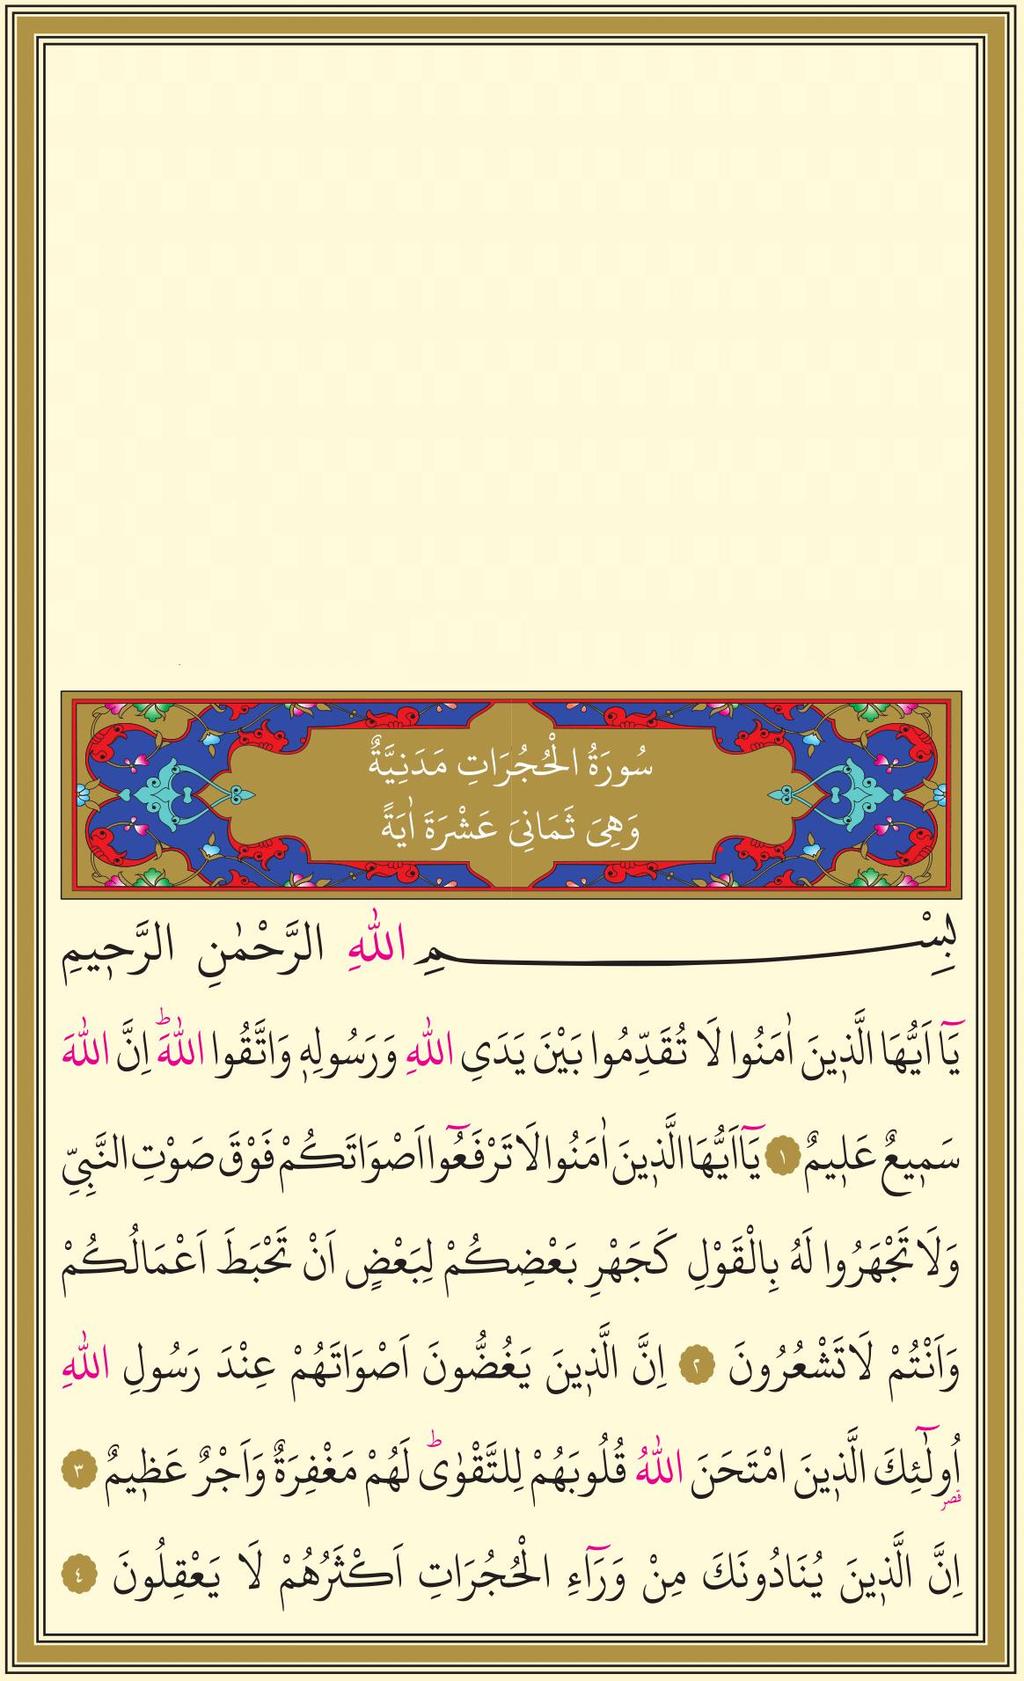 سُورَةُ الْحُجُرَاتِ مَدَنِيَّةٌ
وَهِىَ ثَمَانِىَ عَشْرَةَ اٰيَةً
بِسْمِ اللّٰهِ الرَّحْمٰنِ الرَّح۪يمِ
يَٓا اَيُّهَا الَّذ۪ينَ اٰمَنُوا لَا تُقَدِّمُوا بَيْنَ يَدَيِ اللّٰهِ وَرَسُولِه۪ وَاتَّقُوا اللّٰهَۜ اِنَّ اللّٰهَ
سَم۪يعٌ عَل۪يمٌ ﴿١﴾ يَٓا اَيُّهَا الَّذ۪ينَ اٰمَنُوا لَا تَرْفَعُٓوا اَصْوَاتَكُمْ فَوْقَ صَوْتِ النَّبِيِّ
وَلَا تَجْهَرُوا لَهُ بِالْقَوْلِ كَجَهْرِ بَعْضِكُمْ لِبَعْضٍ اَنْ تَحْبَطَ اَعْمَالُكُمْ
وَاَنْتُمْ لَا تَشْعُرُونَ ﴿٢﴾ اِنَّ الَّذ۪ينَ يَغُضُّونَ اَصْوَاتَهُمْ عِنْدَ رَسُولِ اللّٰهِ
اُو۬لٰٓئِكَ الَّذ۪ينَ امْتَحَنَ اللّٰهُ قُلُوبَهُمْ لِلتَّقْوٰىۜ لَهُمْ مَغْفِرَةٌ وَاَجْرٌ عَظ۪يمٌ ﴿٣﴾
قصر
اِنَّ الَّذ۪ينَ يُنَادُونَكَ مِنْ وَرَٓاءِ الْحُجُرَاتِ اَكْثَرُهُمْ لَا يَعْقِلُونَ ﴿٤﴾